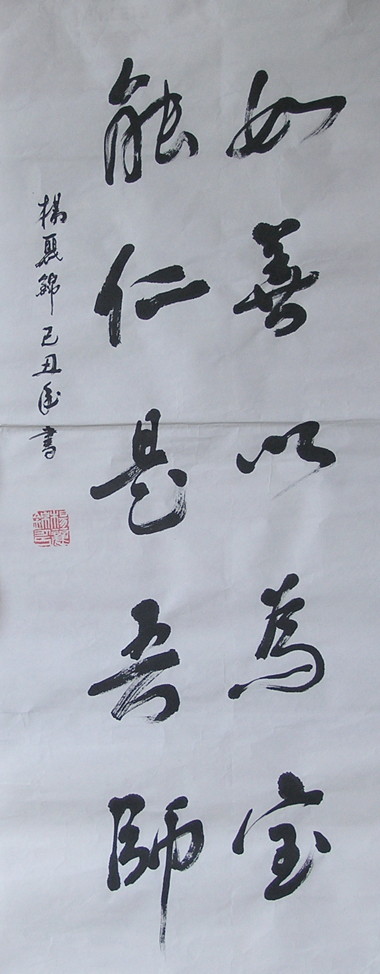 如善以為宝
能仁是吾師
楊己丑年書